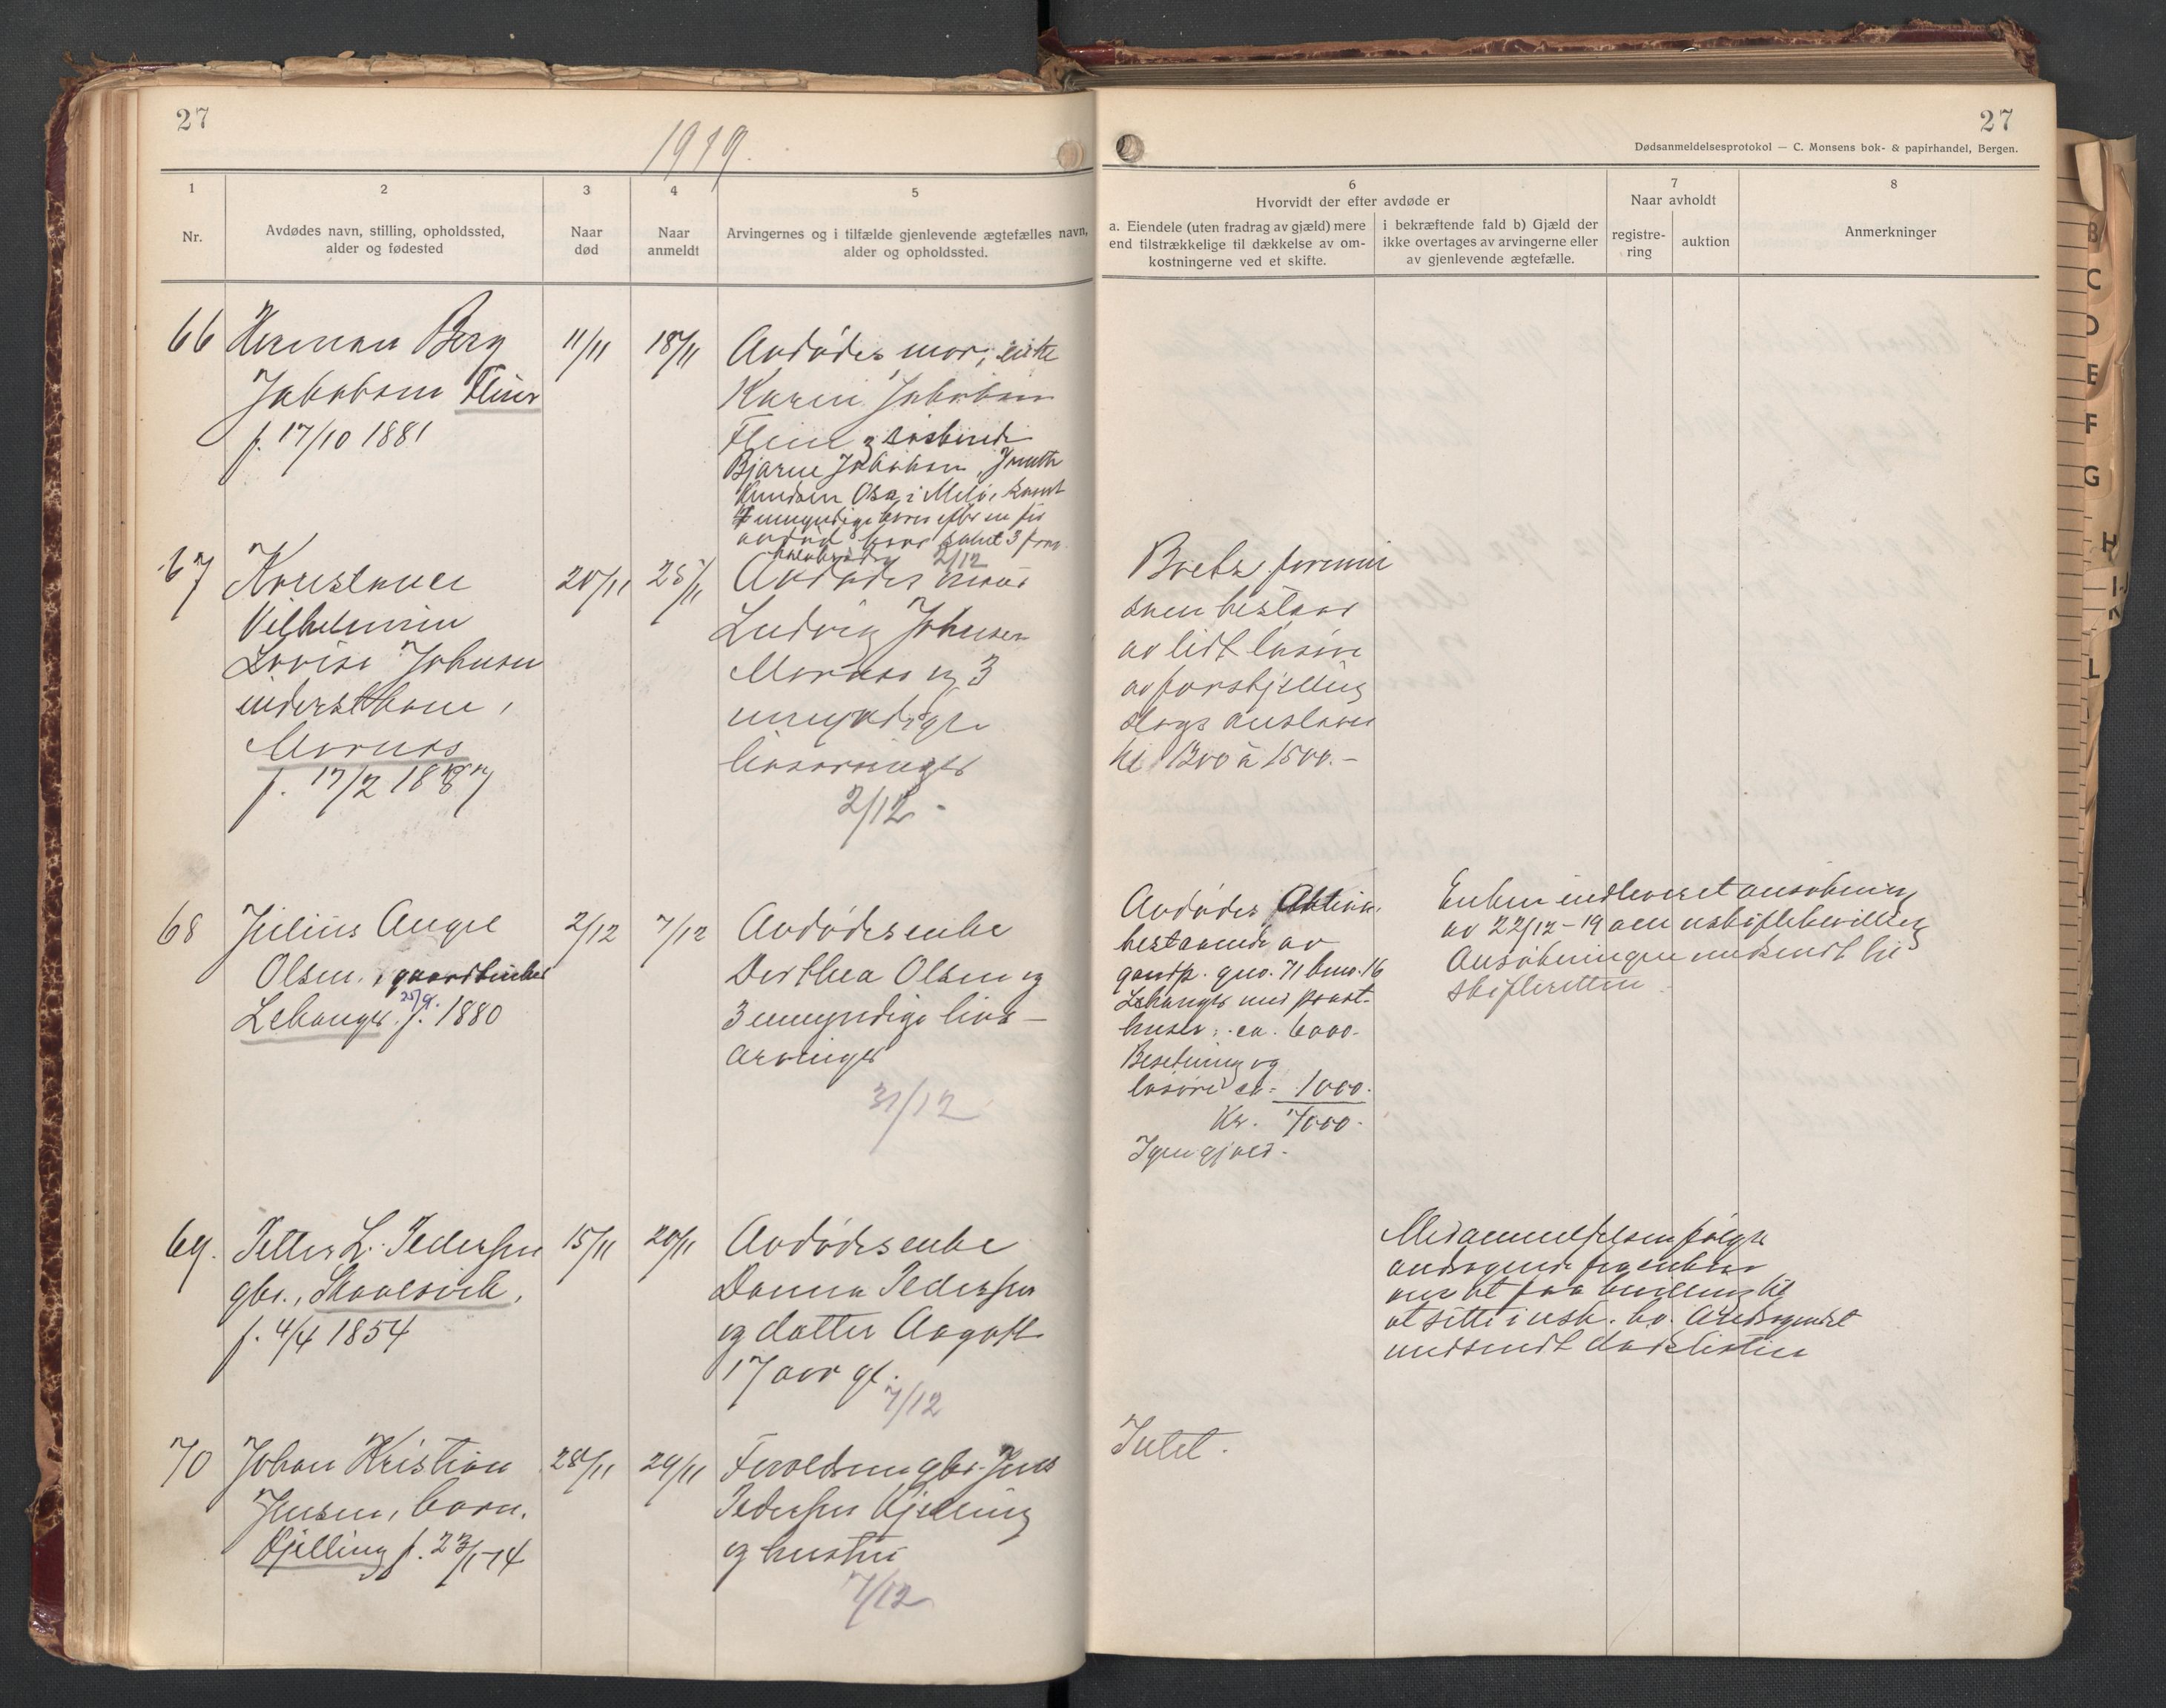 27
1919.
1
2
3
4
5
Nr.
Avdødes navn, stilling, opholdssted,
alder og fødested
Naar
død
Naar
anmeldt
Arvingernes og i tilfælde gjenlevende ægtefælles navn,
alder og opholdssted.
27
Dødsanmeldelsesprotokol — C. Monsens bok- & papirhandel, Bergen.
6
Hvorvidt der efter avdøde er
a. Eiendele (uten fradrag av gjæld) mere
end tilstrækkelige til dækkelse av om-
kostningerne ved et skifte.
i bekræftende fald b) Gjæld der
ikke overtages av arvingerne eller
av gjenlevende ægtefælle.
7
Naar avholdt
registre-
ring
auktion
8
Anmerkninger
66 Herman Berg 11/11 18/11 Avdødes mor, enke
Jakobsen
f. 17/10 1881
Karen Jakobsen
og søskende
Bjarne Jakobsen,
i Melø, samt
umyndige
avdød samt 3
2/12
67 20/11 25/11 Avdødes mand
Vilhelmine
Lovise Johnsen
Mornes
f. 17/2 1887
Ludvig Johnsen
Mornes og 3
umyndige
livsarvinger
2/12 -
Boets formue
som bestaar
av lidt løsøre
av forskjellig
slags anslaaes
til 1200 à 1500.-
68 Julius Angel 2/12 7/12 Avdødes enke
Olsen, gaardbruker
Lekanger 25/9. f. 1880
Dorthea Olsen og
3 umyndige livs-
arvinger
31/12
Avdødes
bestaaende av
gnr. 71 bnr. 16
Lekanger med paast.
huser: ca. 6000.-
Besetning og
løsøre ca. 1000.-
Kr. 7000.-
Ingen gjæld.-
Enken indleveret ansøkning
av 22/12-19 om uskiftebevilling
Ansøkningen nedsendt til
skifteretten.
69. Petter L. Pedersen 15/11 20/11 Avdødes enke
gbr., Skaalsvik,
f. 4/4 1854
Danna Pedersen
og datter Aagot
17 aar gl.
7/12
Med anmeldelsen følger
andragende fra enken
om at faa bevilling til
at sitte i usk. bo. Andragendet
nedsendt
70 Johan Kristian 28/11 29/11 Forældrene gbr. Jens
Jensen, barn,
Kjelling f. 23/1-14
Pedersen Kjelling
og hustru
7/12
Intet.
B
C
D
E
F
G
H
L